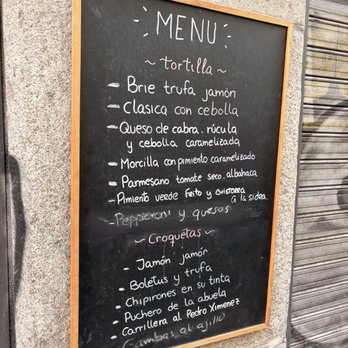 MENU
~ tortilla ~
- Brie trufa jamón
- Clasica con cebolla
- Queso de cabra, rúcula
y cebolla caramelizada
- Morcilla con pimiento caramelizado
- Parmesano tomate seco, albahaca
- Pimiento verde frito y chistorra
a la sidra
- Pepperoni y quesos
~ Croquetas ~
- Jamón jamón
- Boletus y trufa
- Chipirones en su tinta
- Puchero de la abuela
- Carrillera al Pedro Ximenez
- Gambas al ajillo